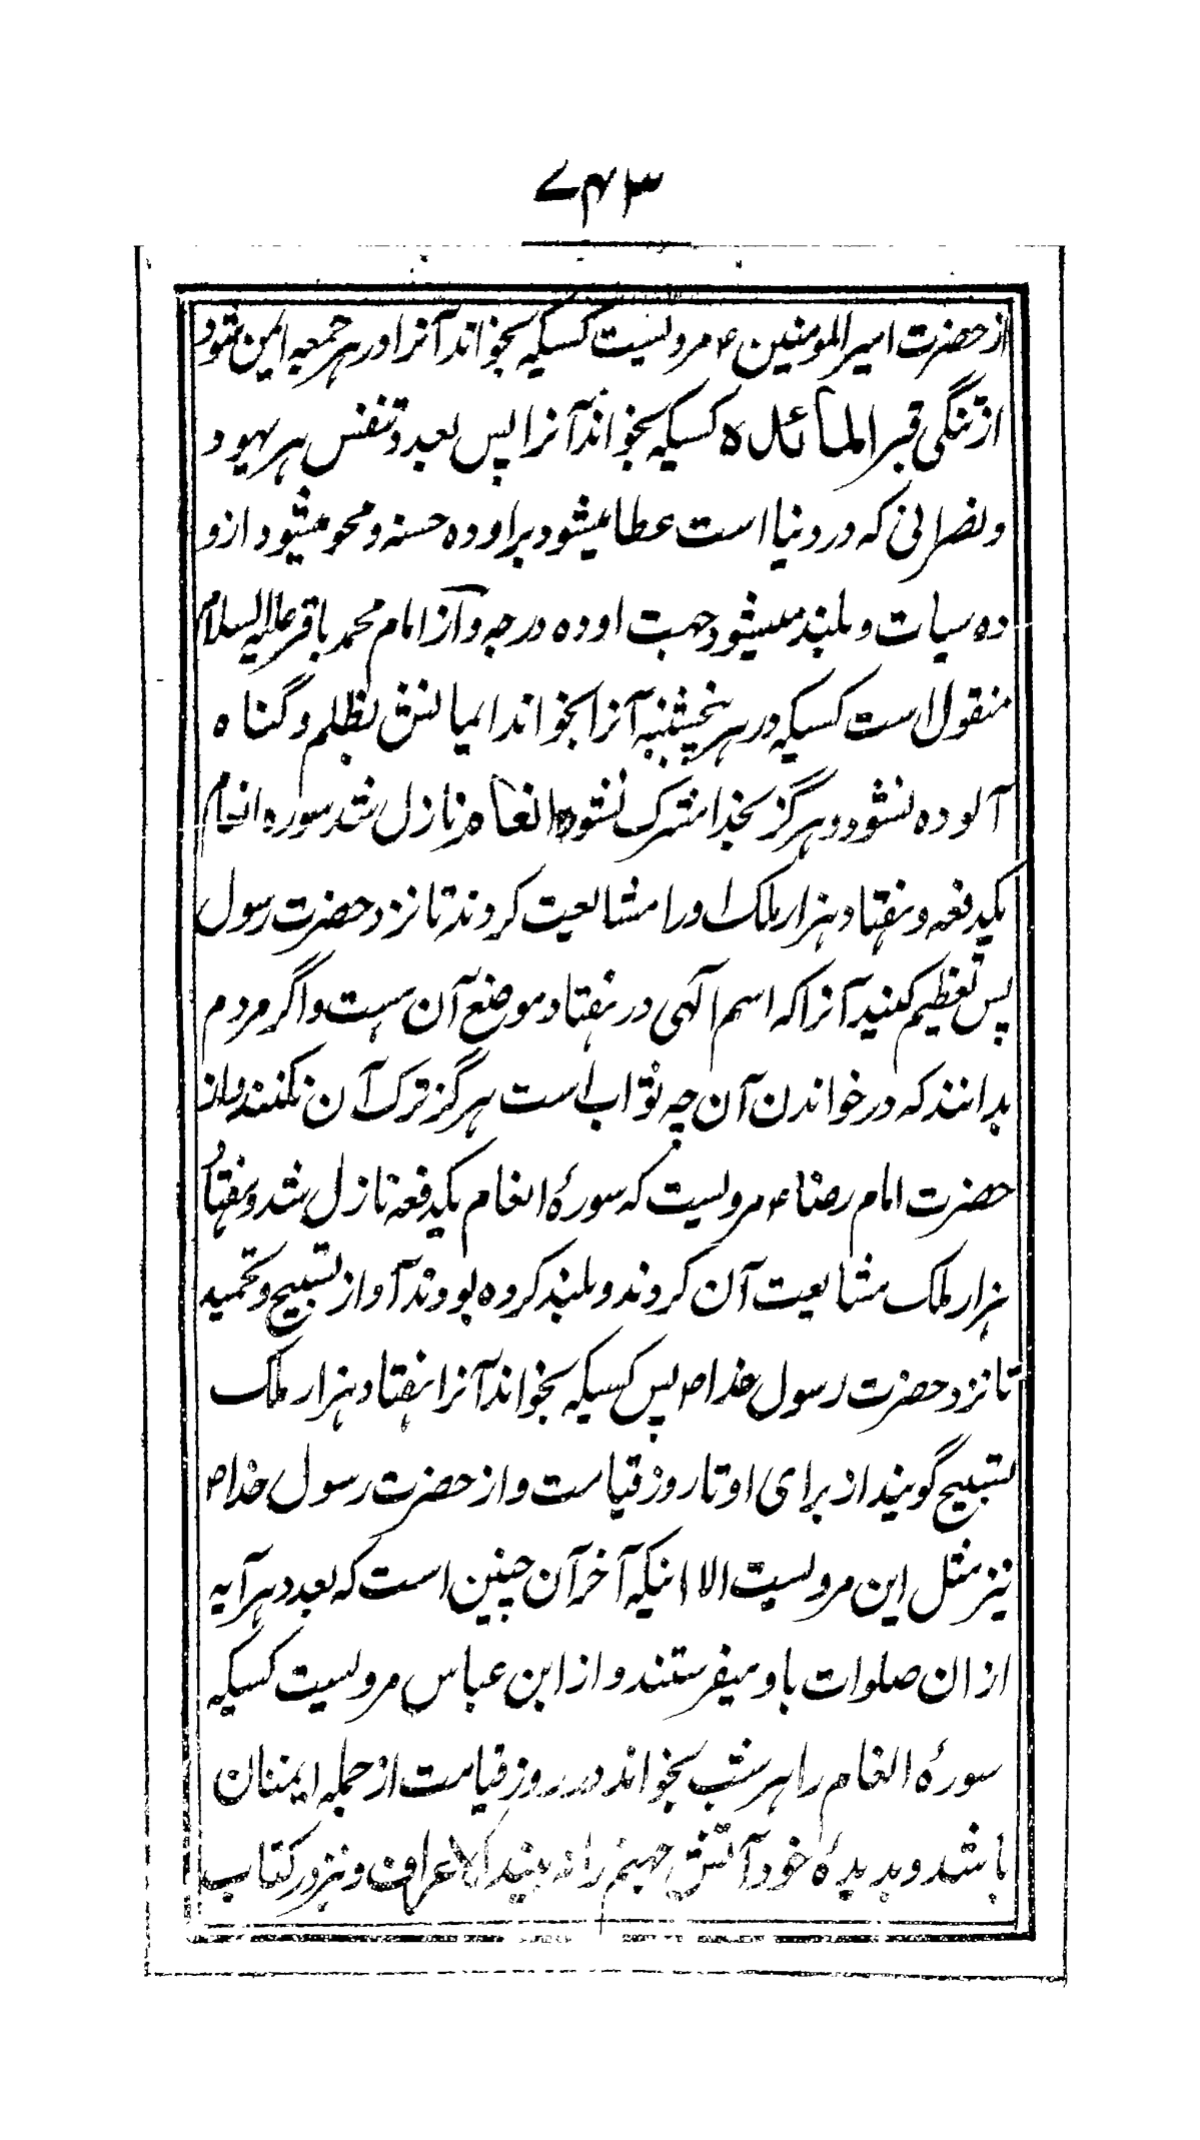 ۷۴۳
از حضرت امیرالمومنین ۴ مرویست کسیکه بخواند آنرا در هر جمعه ایمن شود
از تنگی قبر المائده کسیکه بخواند آنرا پس بعدد تنفس هر یهود
و نصرانی که در دنیا است عطا میشود براو ده حسنه و محو میشود ازو
ده سیات و بلند میشود جهت او ده درجه و از امام محمد باقر علیه السلام
منقول است کسیکه در هر پنجشنبه آنرا بخواند ایمانش بظلم و گناه
آلوده نشود و هرگز بخدا مشرک نشود انعام نازل شد سوره انعام
یکدفعه و هفتاد هزار ملک او را مشایعیت کردند تا نزد حضرت رسول
پس تعظیم کنید آنرا که اسم الهی در هفتاد موضع آن هست و اگر مردم
بدانند که در خواندن آن چه ثواب است هرگز ترک آن نکنند و از
حضرت امام رضا ۴ مرویست که سورهٔ انعام یکدفعه نازل شد و هفتاد
هزار ملک مشایعیت آن کردند و بلند کرده بودند آواز تسبیح و تحمید
تا نزد حضرت رسول خدا ص پس کسیکه بخواند آنرا هفتاد هزار ملک
تسبیح گویند از برای او تا روز قیامت و از حضرت رسول خدا ص
نیز مثل این مرویست الا اینکه آخر آن چنین است که بعدد هر آیه
از ان صلوات باو میفرستند و از ابن عباس مرویست کسیکه
سورهٔ انعام را هر شب بخواند در روز قیامت از جمله ایمنان
باشد و بدیدهٔ خود آتش جهنم را نه بیند الاعراف و نیز در کتاب